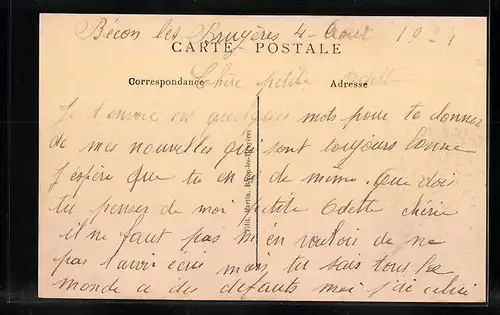 Bécon les Bruyères 4 Août 1921
CARTE POSTALE
Correspondance
Adresse
Chère petite Odette
Je t'envoie ces quelques mots pour te donner
de mes nouvelles qui sont toujours bonne
J'espère que tu en es de même. Que dois
tu penser de moi petite Odette chérie
il ne faut pas m'en vouloir de ne
pas t'avoir écris mais tu sais tous le
monde a des défauts moi j'ai celui
Edit. Martin, Bécon-les-Bruyères